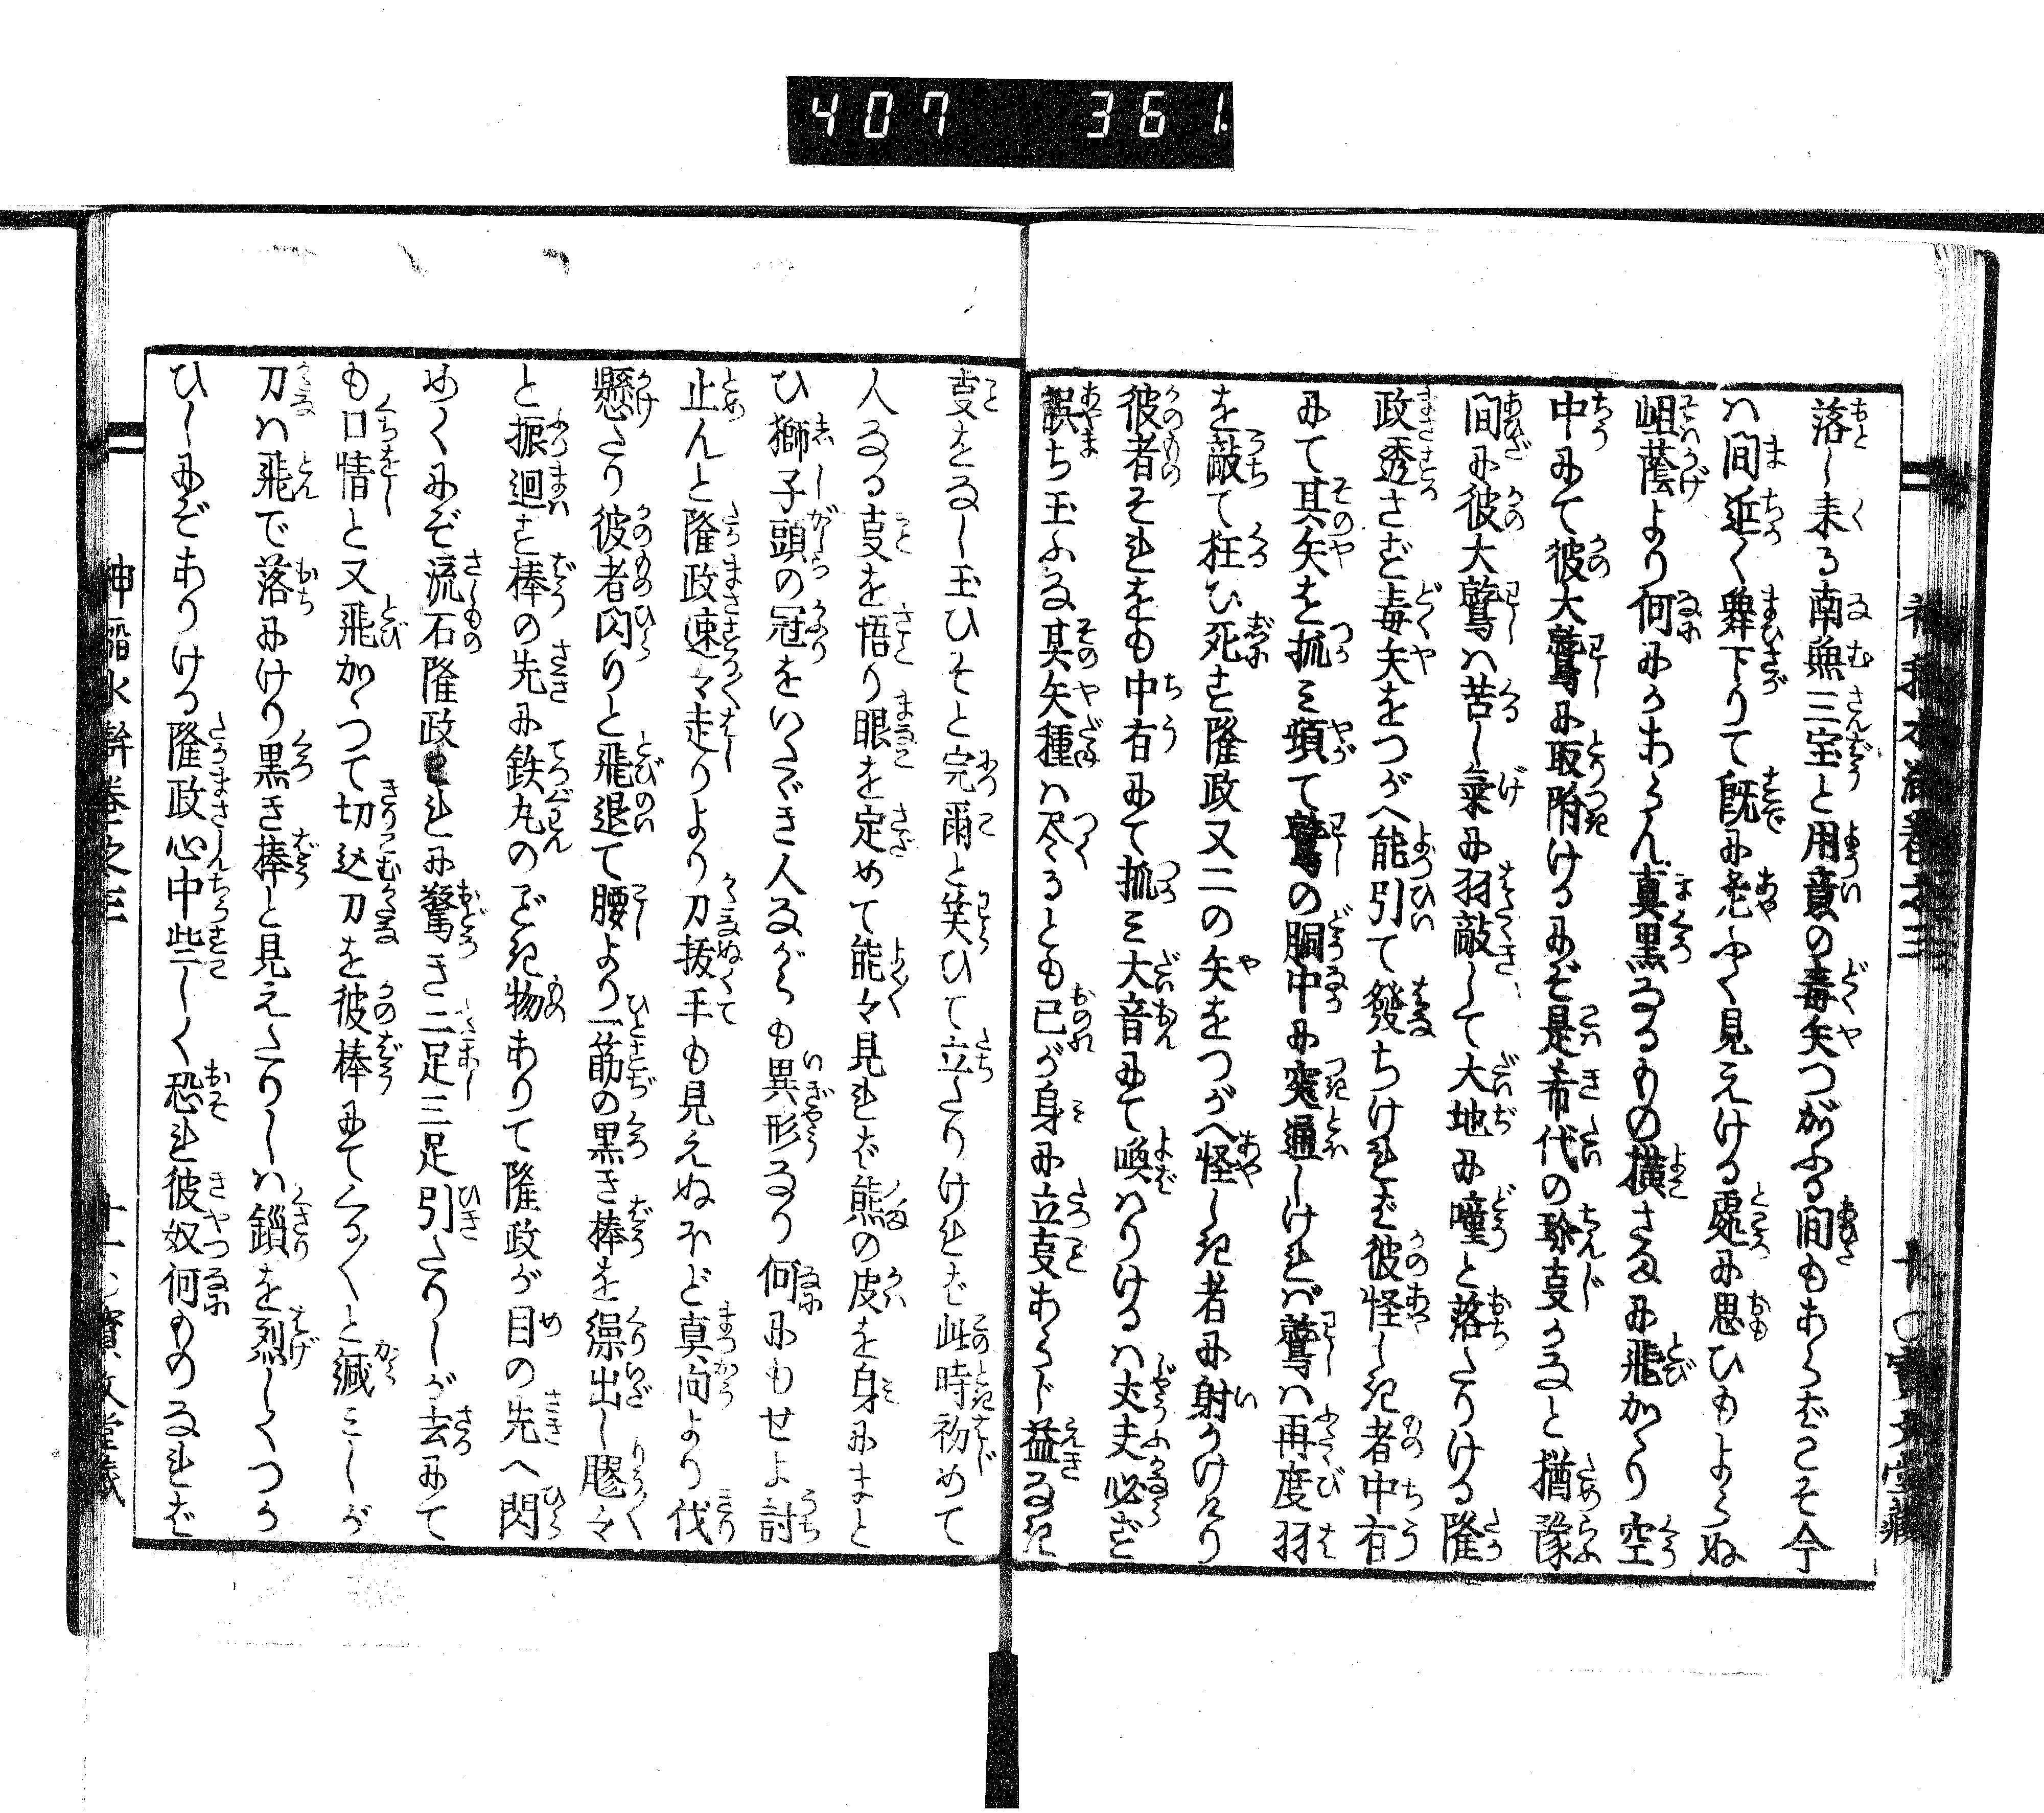 407 361
落し来る南無三宝と用意の毒矢つがふる間もあらばこそ今
ハ間近く舞下りて既に危ふく見えける処に思ひもよらぬ
岨蔭より何にかあらん真黒なるもの横さまに飛かゝり空
中にて彼大鷲に取附けるにぞ是希代の珍事かなと猶豫
間に彼大鷲ハ苦し気に羽敲して大地に噇と落たりける隆
政透さず毒矢をつがへ能引て發ちければ彼怪しき者中有
にて其矢を抓ミ頓て鷲の胴中に突通しけれバ鷲ハ再度羽
を敲て狂ひ死す隆政又二の矢をつがへ怪しき者に射かけたり
彼者それをも中有にて抓ミ大音にて喚ハりけるハ丈夫必ず
誤ち玉ふな其矢種ハ尽るとも己が身に立事あらじ益なき
事をなし玉ひそと完爾と笑ひて立たりければ此時初めて
人なる事を悟り眼を定めて能々見れば熊の皮を身にまと
ひ獅子頭の冠をいたゞき人ながらも異形なり何にもせよ討
止んと隆政速々走りより刀抜手も見えぬほど真向より伐
懸たり彼者閃りと飛退て腰より一筋の黒き棒を繰出し膠々
と振廻す棒の先に鉄丸のごき物ありて隆政が目の先へ閃
めくにぞ流石隆政これに驚き二足三足引たりしが去にて
も口惜と又飛かゝつて切込刀を彼棒にてくる〱と緘ミしが
刀ハ飛で落にけり黒き棒と見えたりしハ鎖を烈しくつか
ひしにぞありける隆政心中些しく恐れ彼奴何ものなれば
神稲水滸巻之三
十一
寶文堂藏